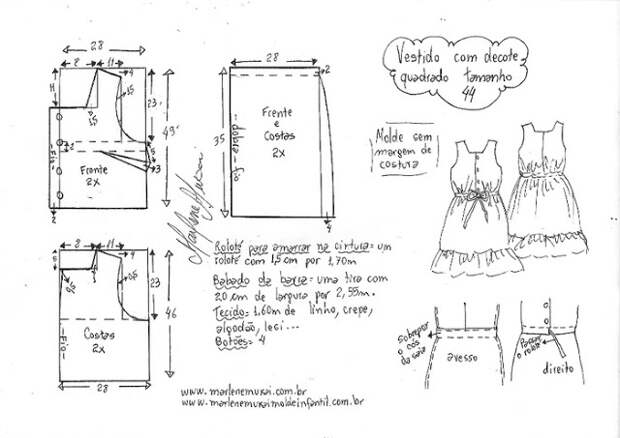 Vestido com decote
quadrado tamanho
44
Molde sem
margem de
costura
28
8
11
4
H
1,5
1,5
23
49
-Fio-
2
5
3
Frente
2x
2
28
2
35
Frente
e
Costas
2x
-dobra-fio
4
Marlene Mukai
8
11
4
5
23
46
-Fio-
Costas
2x
28
Rolotê para amarrar na cintura= um
rolotê com 1,5 cm por 1,70m
Babado da barra= uma tira com
20 cm de largura por 2,55m.
Tecido= 1.60m de linho, crepe,
algodão, lesi...
Botões= 4
sobrepor
o cós
da saia
avesso
Passar
o rolotê
direito
www.marlenemukai.com.br
www.marlenemukaimoldeinfantil.com.br